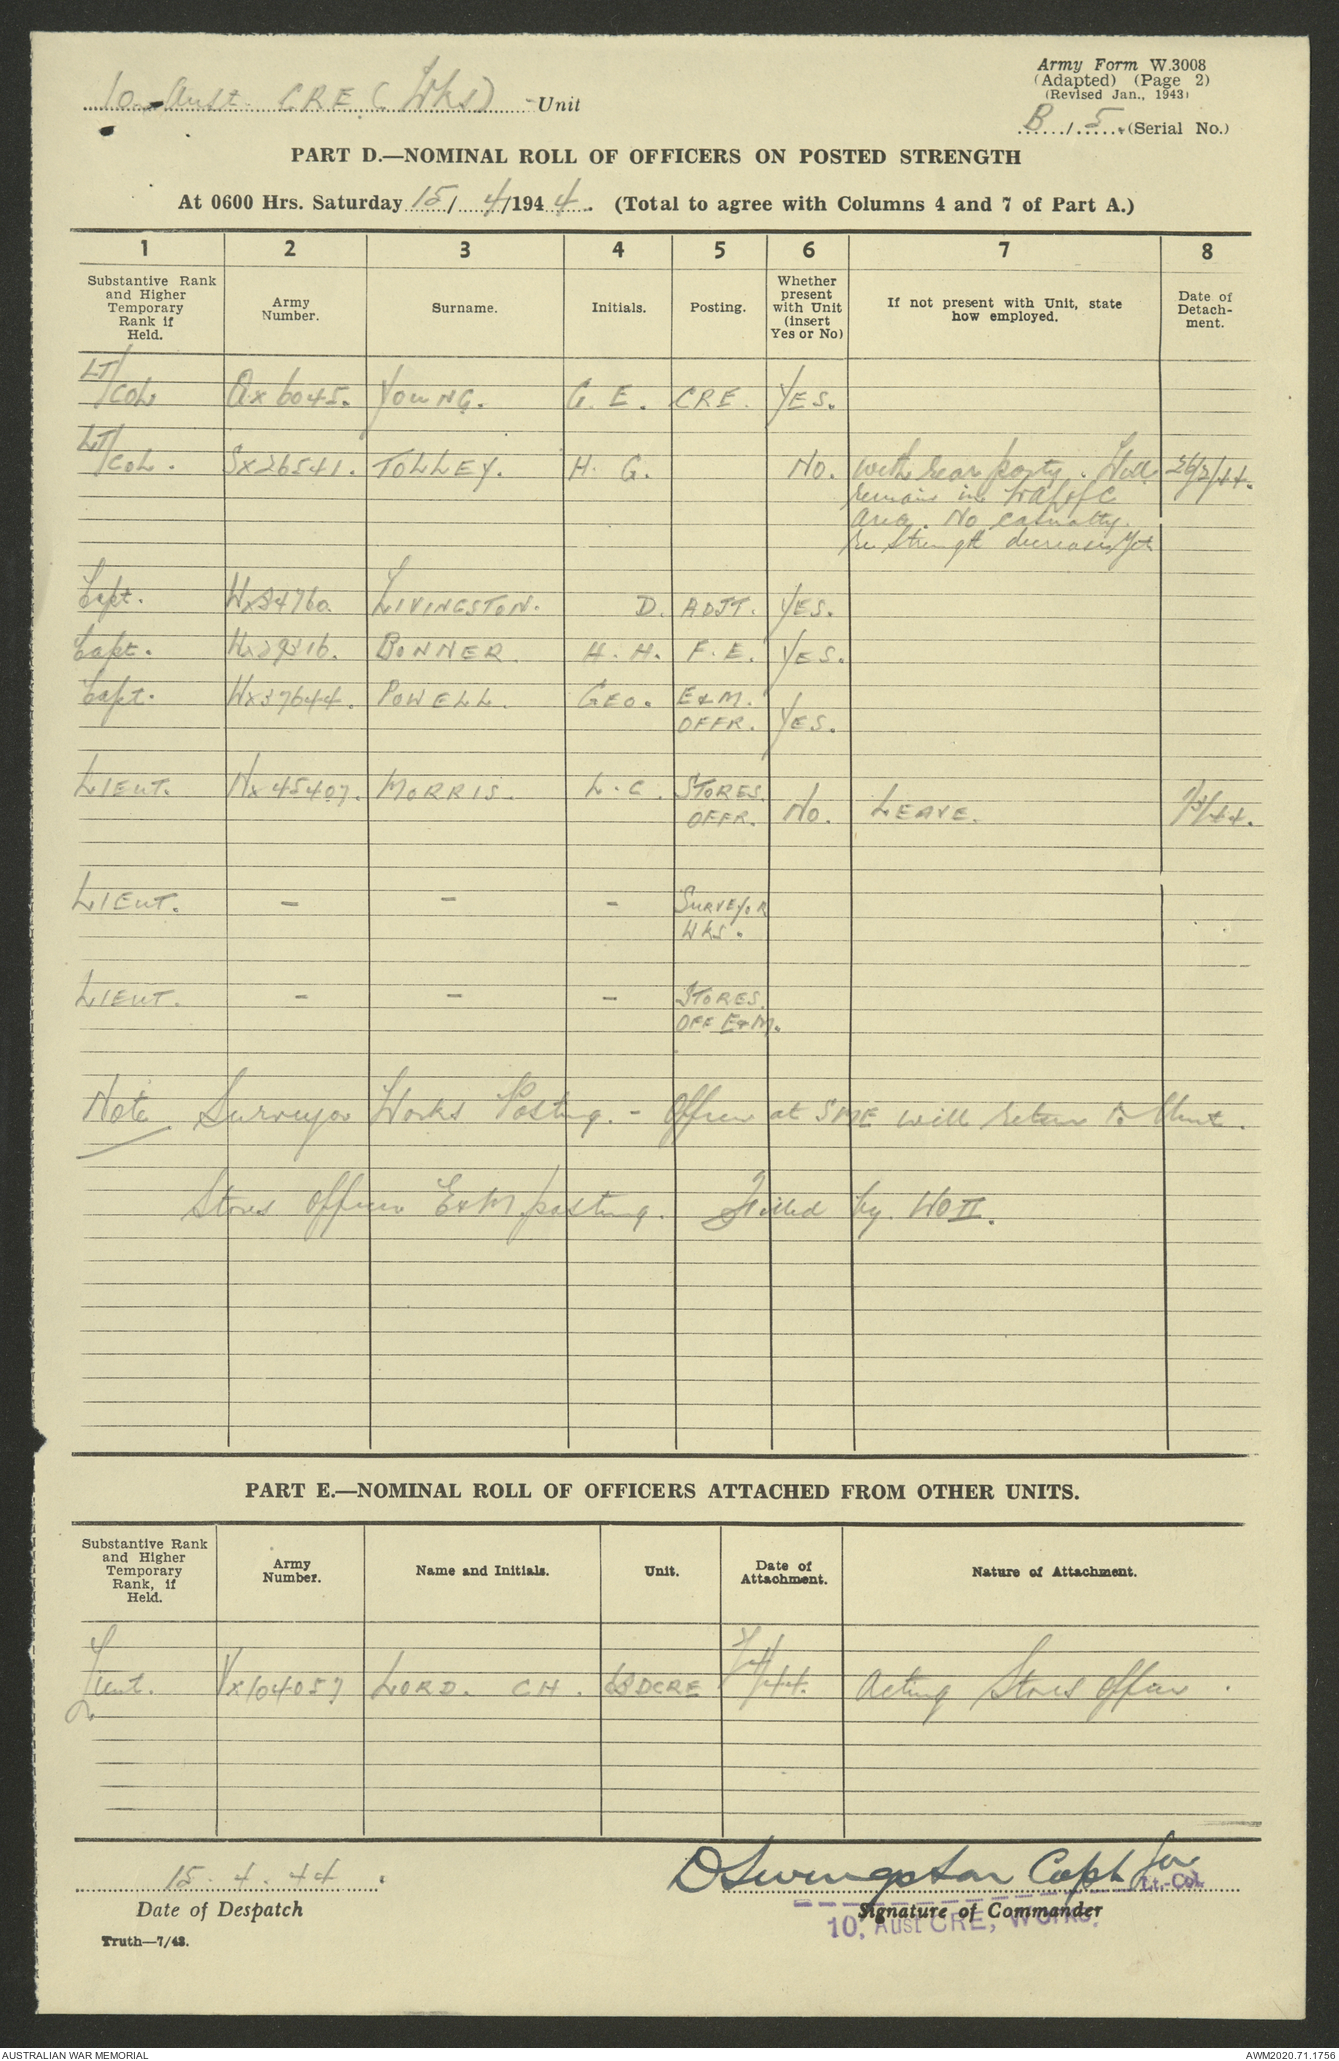 Army Form W.3008
(Adapted) (Page 2)
(Revised Jan., 1943)
10 Aust. CRE (Wks) Unit
B / 5 (Serial No.)
PART D.—NOMINAL ROLL OF OFFICERS ON POSTED STRENGTH
At 0600 Hrs. Saturday 15/ 4/1944. (Total to agree with Columns 4 and 7 of Part A.)
1 2 3 4 5 6 7 8
Substantive Rank and Higher Temporary Rank if Held. Army Number. Surname. Initials. Posting. Whether present with Unit (insert Yes or No) If not present with Unit, state how employed. Date of Detachment.
LT/COL QX6045. YOUNG. G. E. CRE. YES.
LT/COL. SX26541. TOLLEY. H. G. NO. With rear party. Will 26/2/44.
remain in
area. No casualty.
re strength decrease yet
Capt. LIVINGSTON. D. ADJT. YES.
Capt. BONNER. H. H. F. E. YES.
Capt. WX37644. POWELL. GEO. E&M. OFFR. YES.
LIEUT. NX45407. MORRIS. L. C. STORES. OFFR. NO. LEAVE. /44.
LIEUT. - - - SURVEYOR WKS.
LIEUT. - - - STORES. OFF E&M.
Note Surveyor Works Posting. - Officer at SME will return to Unit.
Stores Officer E&M posting. Filled by WO II.
PART E.—NOMINAL ROLL OF OFFICERS ATTACHED FROM OTHER UNITS.
Substantive Rank and Higher Temporary Rank, if Held. Army Number. Name and Initials. Unit. Date of Attachment. Nature of Attachment.
Lieut. VX104057 LORD. CH. DCRE /4/44. Acting Stores Officer.
15. 4. 44.
D Livingston Capt for
Lt.-Col.
Date of Despatch
Signature of Commander
10, Aust CRE, Works.
Truth—7/43.
AUSTRALIAN WAR MEMORIAL
AWM2020.71.1756